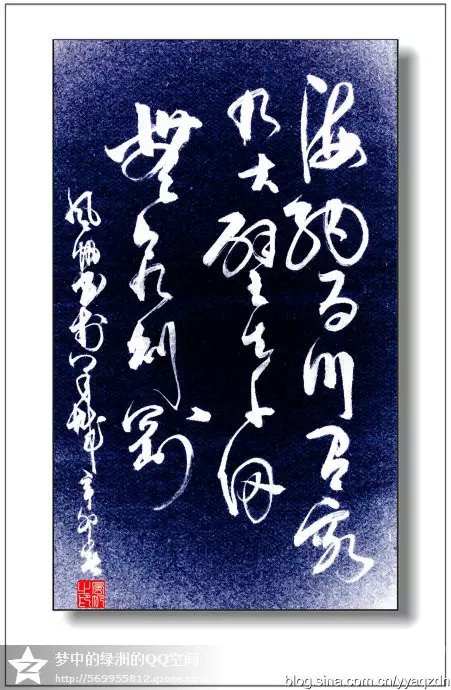 海納百川有容
乃大壁立千仞
無欲則剛
辛卯春
梦中的绿洲的QQ空间
http://569955812.qzone.qq.com
blog.sina.com.cn/yyaqzdn